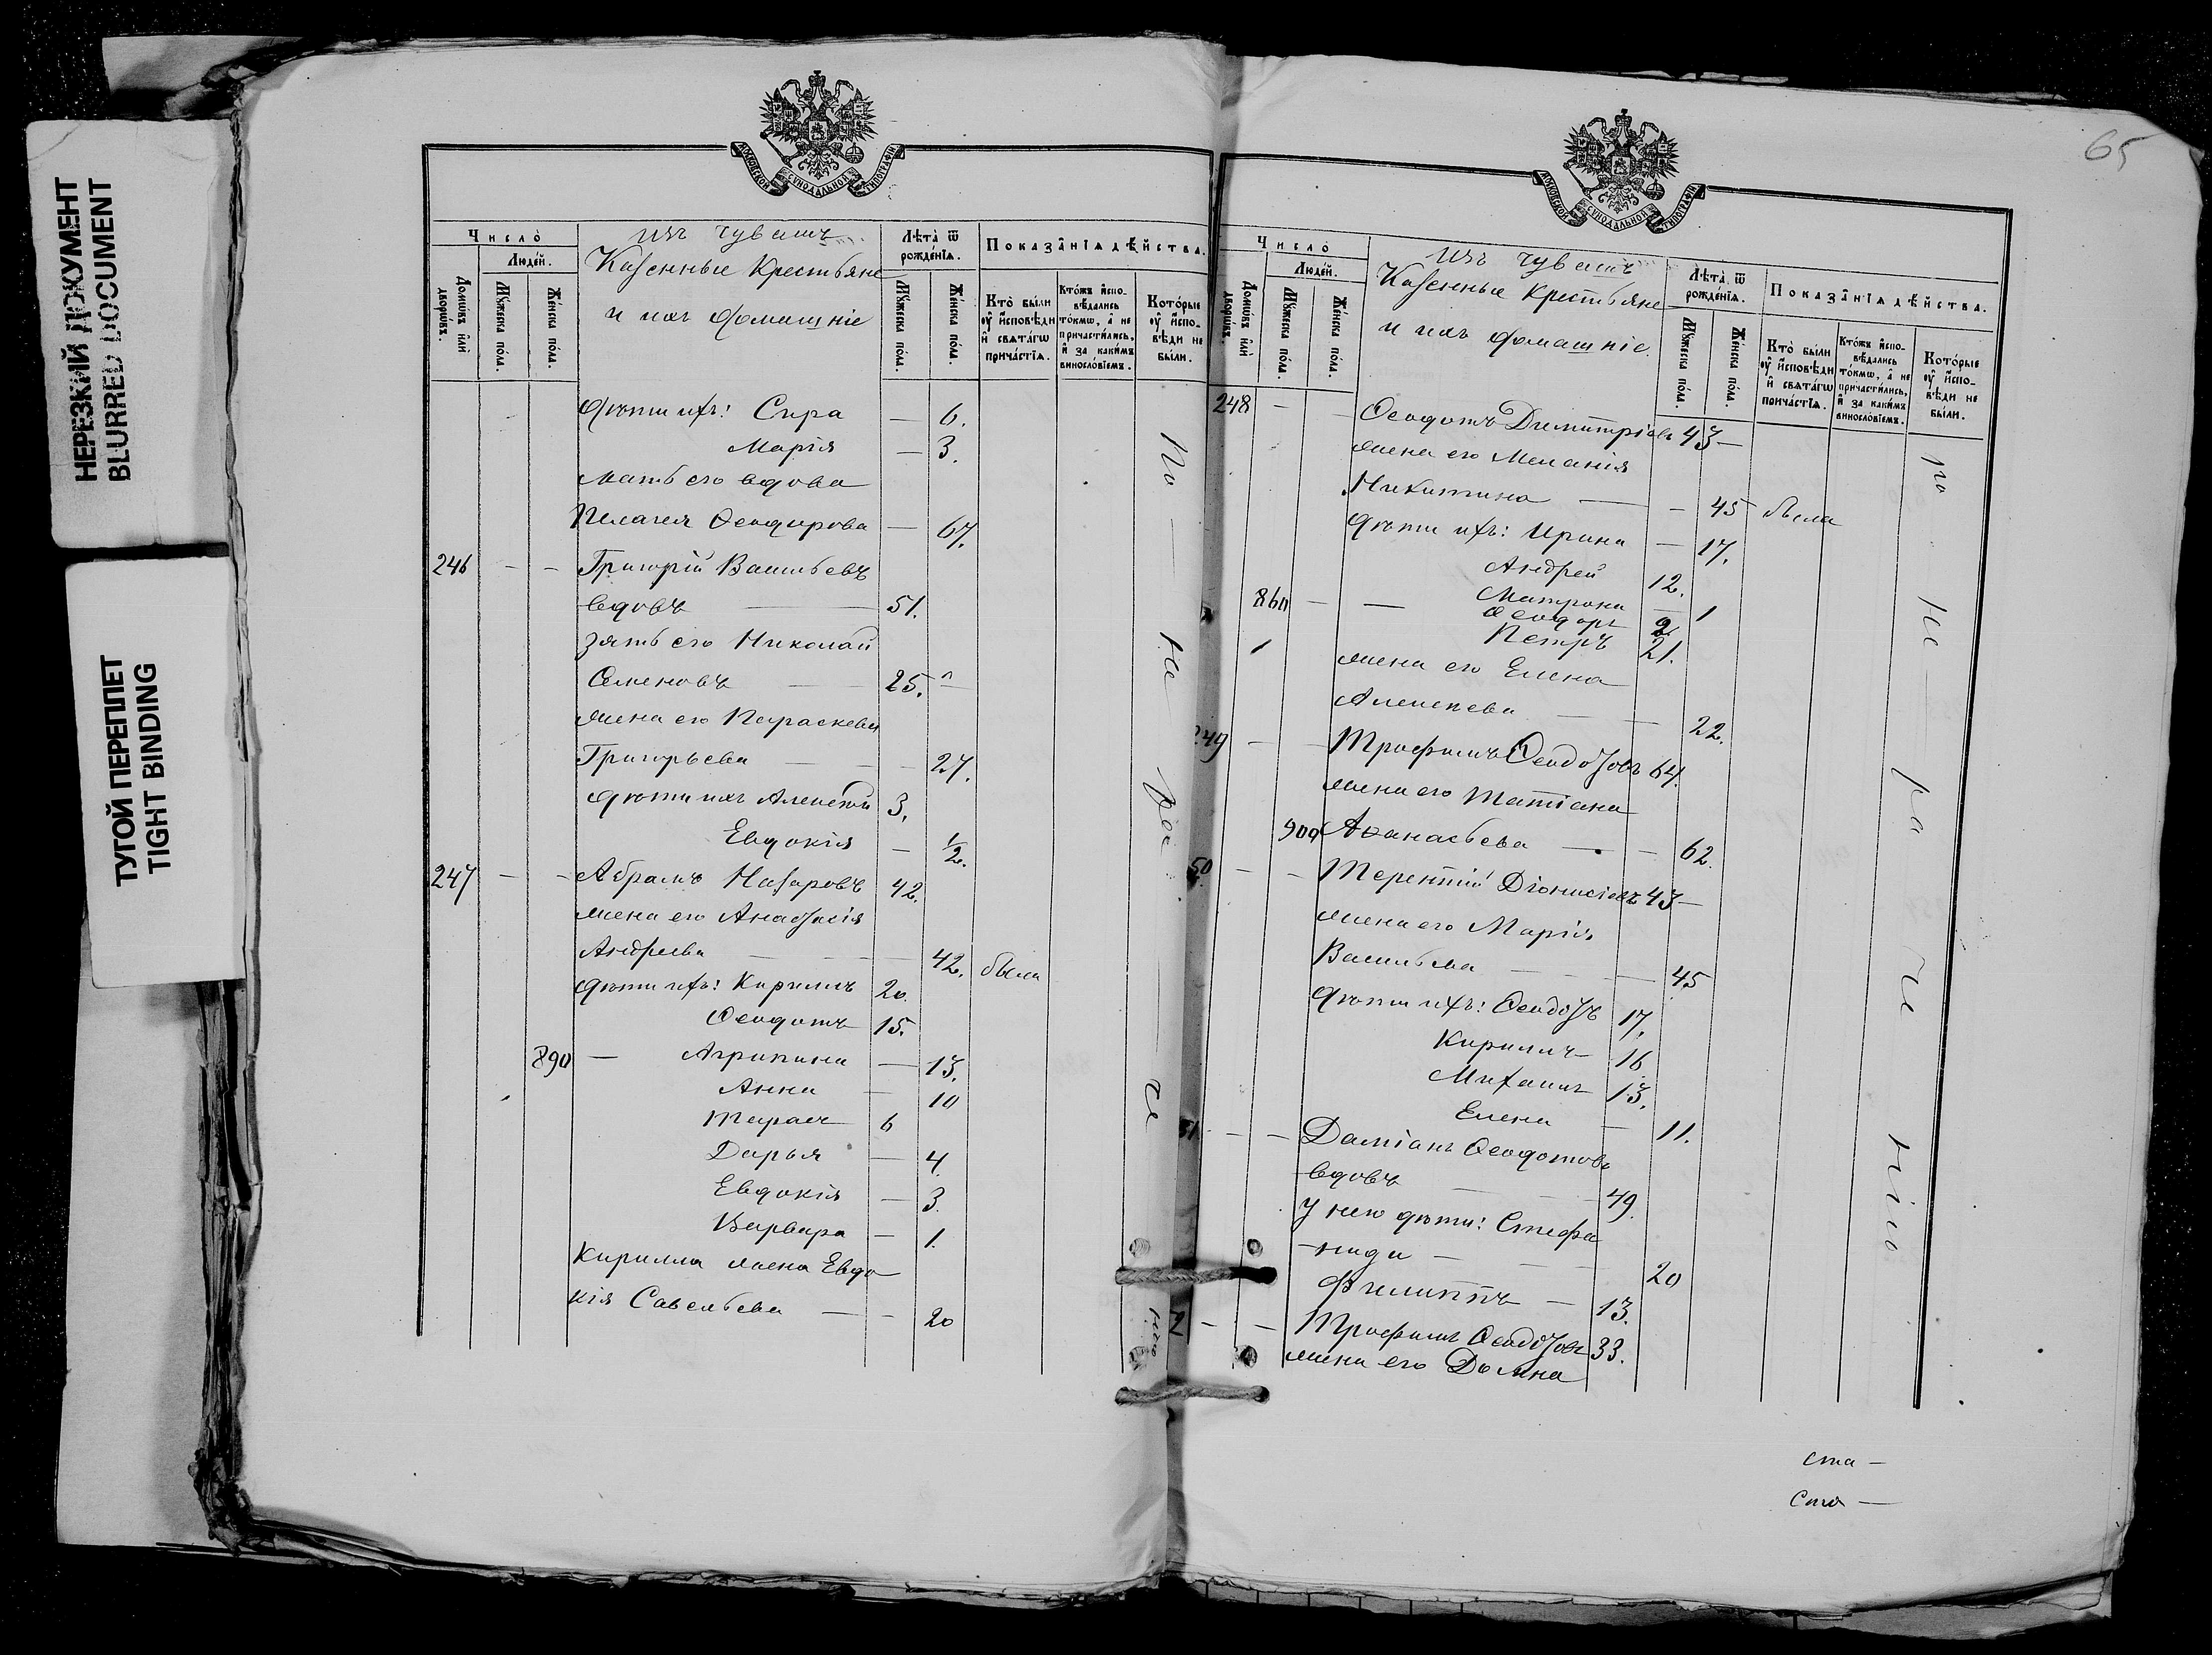 НЕРЕЗКИЙ ДОКУМЕНТ
BLURRED DOCUMENT
ТУГОЙ ПЕРЕПЛЕТ
TIGHT BINDING
МОСКОВСКОЙ СѴНОДАЛЬНОЙ ТИПОГРАФІИ
Число̀
Людей.
Домѡвъ и҆лѝ дворѡвъ.
Мꙋжеска пола.
Женска пола.
изъ чувашъ
Казенные Крестьяне
и ихъ домашніе
Лѣта̀ ѿ рожденїѧ.
Мꙋжеска пола.
Женска пола.
Показа̑нїѧ дѣйства.
Кто̀ были ᲂу҆ и҆сповѣди и҆ свѧтагѡ причастїѧ.
Ктожъ и҆сповѣдались токмѡ, а҆ не причастились, и҆ за какимъ винословїемъ.
Которые ᲂу҆ и҆сповѣди не были.
дѣти ихъ: Сира — 6.
Марія — 3.
мать его вдова
Пелагея Ѳеодорова — 67.
246 — — Григорій Васильевъ
вдовъ — 51.
зять его Николай
Семеновъ — 25.
жена его Параскева
Григорьева — 27.
дѣти ихъ Алексѣй 3.
Евдокія — 1/2.
247 — — Абрамъ Назаровъ 42.
жена его Анастасія
Андреева — 42. была
дѣти ихъ: Кириллъ 20.
Ѳеодотъ 15.
890 — Агрипина — 13.
Анна — 10
Тарасъ 6
Дарья — 4.
Евдокія — 3.
Варвара — 1.
Кирилла жена Евдо
кія Савельева — 20
По — не — ра — че — нію
65
МОСКОВСКОЙ СѴНОДАЛЬНОЙ ТИПОГРАФІИ
Число̀
Людей.
Домѡвъ и҆лѝ дворѡвъ.
Мꙋжеска пола.
Женска пола.
изъ чувашъ
Казенные Крестьяне
и ихъ домашніе.
Лѣта̀ ѿ рожденїѧ.
Мꙋжеска пола.
Женска пола.
Показа̑нїѧ дѣйства.
Кто̀ были ᲂу҆ и҆сповѣди и҆ свѧтагѡ причастїѧ.
Ктожъ и҆сповѣдались токмѡ, а҆ не причастились, и҆ за какимъ винословїемъ.
Которые ᲂу҆ и҆сповѣди не были.
248 — — Ѳеодотъ Димитріевъ 43 —
жена его Меланія
Никитина — 45 была
дѣти ихъ: Ирина — 17.
Андрей 12.
860 — — Матрона — 1
Ѳеодоръ 2
1 Петръ 21.
жена его Елена
Алексеева — 22.
249 — — Трофимъ Ѳеодозовъ 64.
жена его Татіана
900 Аѳанасьева — 62.
50 — — Терентій Діонисіевъ 43 —
жена его Марія
Васильева — 45
дѣти ихъ: Ѳеодозъ 17.
Кириллъ 16.
Михаилъ 13.
Елена — 11.
51 — — Даміанъ Ѳеодотовъ
вдовъ — 49.
У него дѣти: Стефа
нида — 20
Филиппъ — 13.
2 — — Трофимъ Ѳеодозовъ 33.
жена его Домна
по — не — ра — че — нію
ста —
ста —